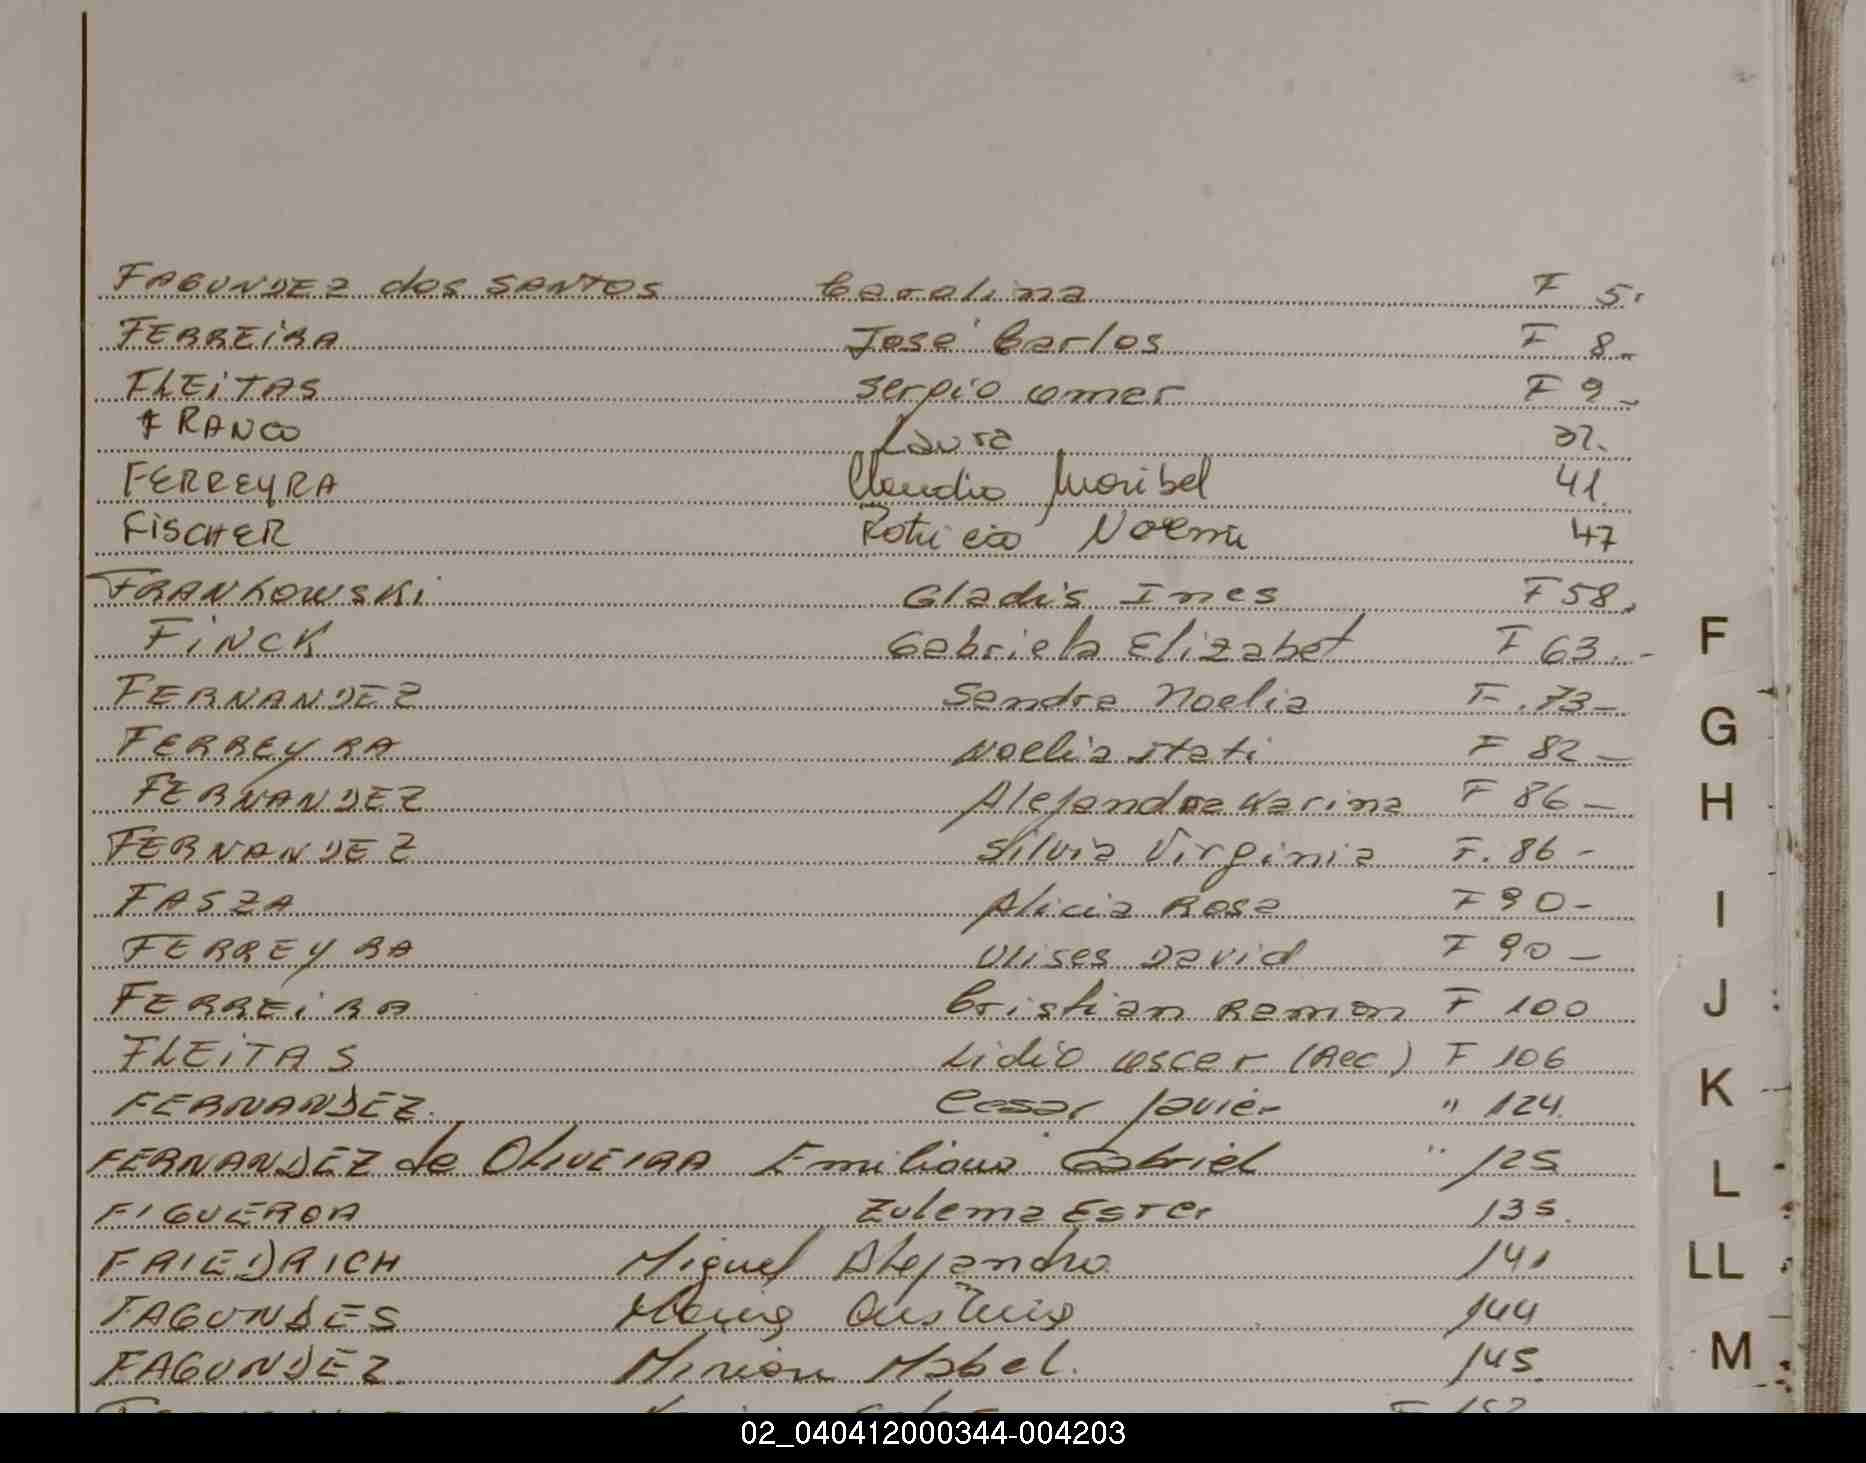 FAGUNDEZ dos SANTOS Carolina F 5.
FERREiRA José Carlos F 8-
FLEiTAS Sergio Omar F 9-
FRANCO Laura 32.
FERREYRA Claudia Maribel 41.
FiSCHER Patricia Noemi 47
FRANKOWSKi Gladis Ines F 58.
FiNCK Gabriela Elizabet F 63.-
FERNANDEZ Sandra Noelia F.73-
FERREYRA Noelia Itati F 82-
FERNANDEZ Alejandra Karina F 86-
FERNANDEZ Silvia Virginia F. 86-
FASZA Alicia Rosa F 90-
FERREYRA Ulises David F 90-
FERREiRA Cristian Ramon F 100
FLEiTAS Lidio Oscar (Rec.) F 106
FERNANDEZ. Cesar Javier " 124.
FERNANDEZ de OLIVEIRA Emiliano Gabriel " 125
FIGUEROA Zulema Ester 135.
FRIEDRICH Miguel Alejandro 141
FAGUNDES Maria 144
FAGUNDEZ. Mirian Mabel. 145.
F
G
H
I
J
K
L
LL
M
02_040412000344-004203